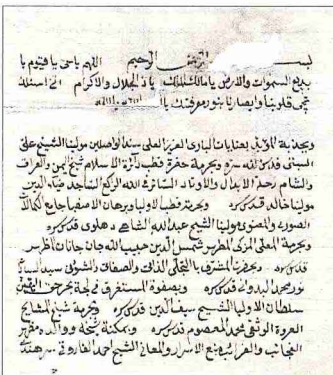 بسم الله الرحمن الرحيم اللهم يا حي يا قيوم يا
بديع السموات والارض يا مالك الملك يا ذا الجلال والاكرام اني اسئلك
تحيي قلوبنا وابصارنا بنور معرفتك يا الله
بعنايات الباري العزيز العلي سيدنا مولينا الشيخ علي
قدس الله سره وبحرمة حضرة قطب دائرة الاسلام شيخ اليمن والعراق
والشام الابدال والاوتاد الراكع الساجد ضياء الدين
مولانا خالد قدس سره وبحرمة قطب الاوليا وبرهان الاصفيا جامع الكمالات
الصوري والمعنوي مولينا الشيخ عبد الله الشاه دهلوي قدس سره
وبحرمة شمس الدين حبيب الله جان جانان مظهر
قدس سره وبحضرت المشرف بالتجلي الذاتي والصفاتي سيد السادات
نور محمد البدواني قدس سره وبصفوة المستغرق في لجة بحر حق اليقين
سلطان الاوليا الشيخ سيف الدين قدس سره وبحرمة شيخ المشايخ
العروة الوثقى محمد المعصوم قدس سره شيخه ووالده مظهر
العجائب والغرائب منبع الاسرار والمعاني الشيخ احمد الفاروقي سرهندي